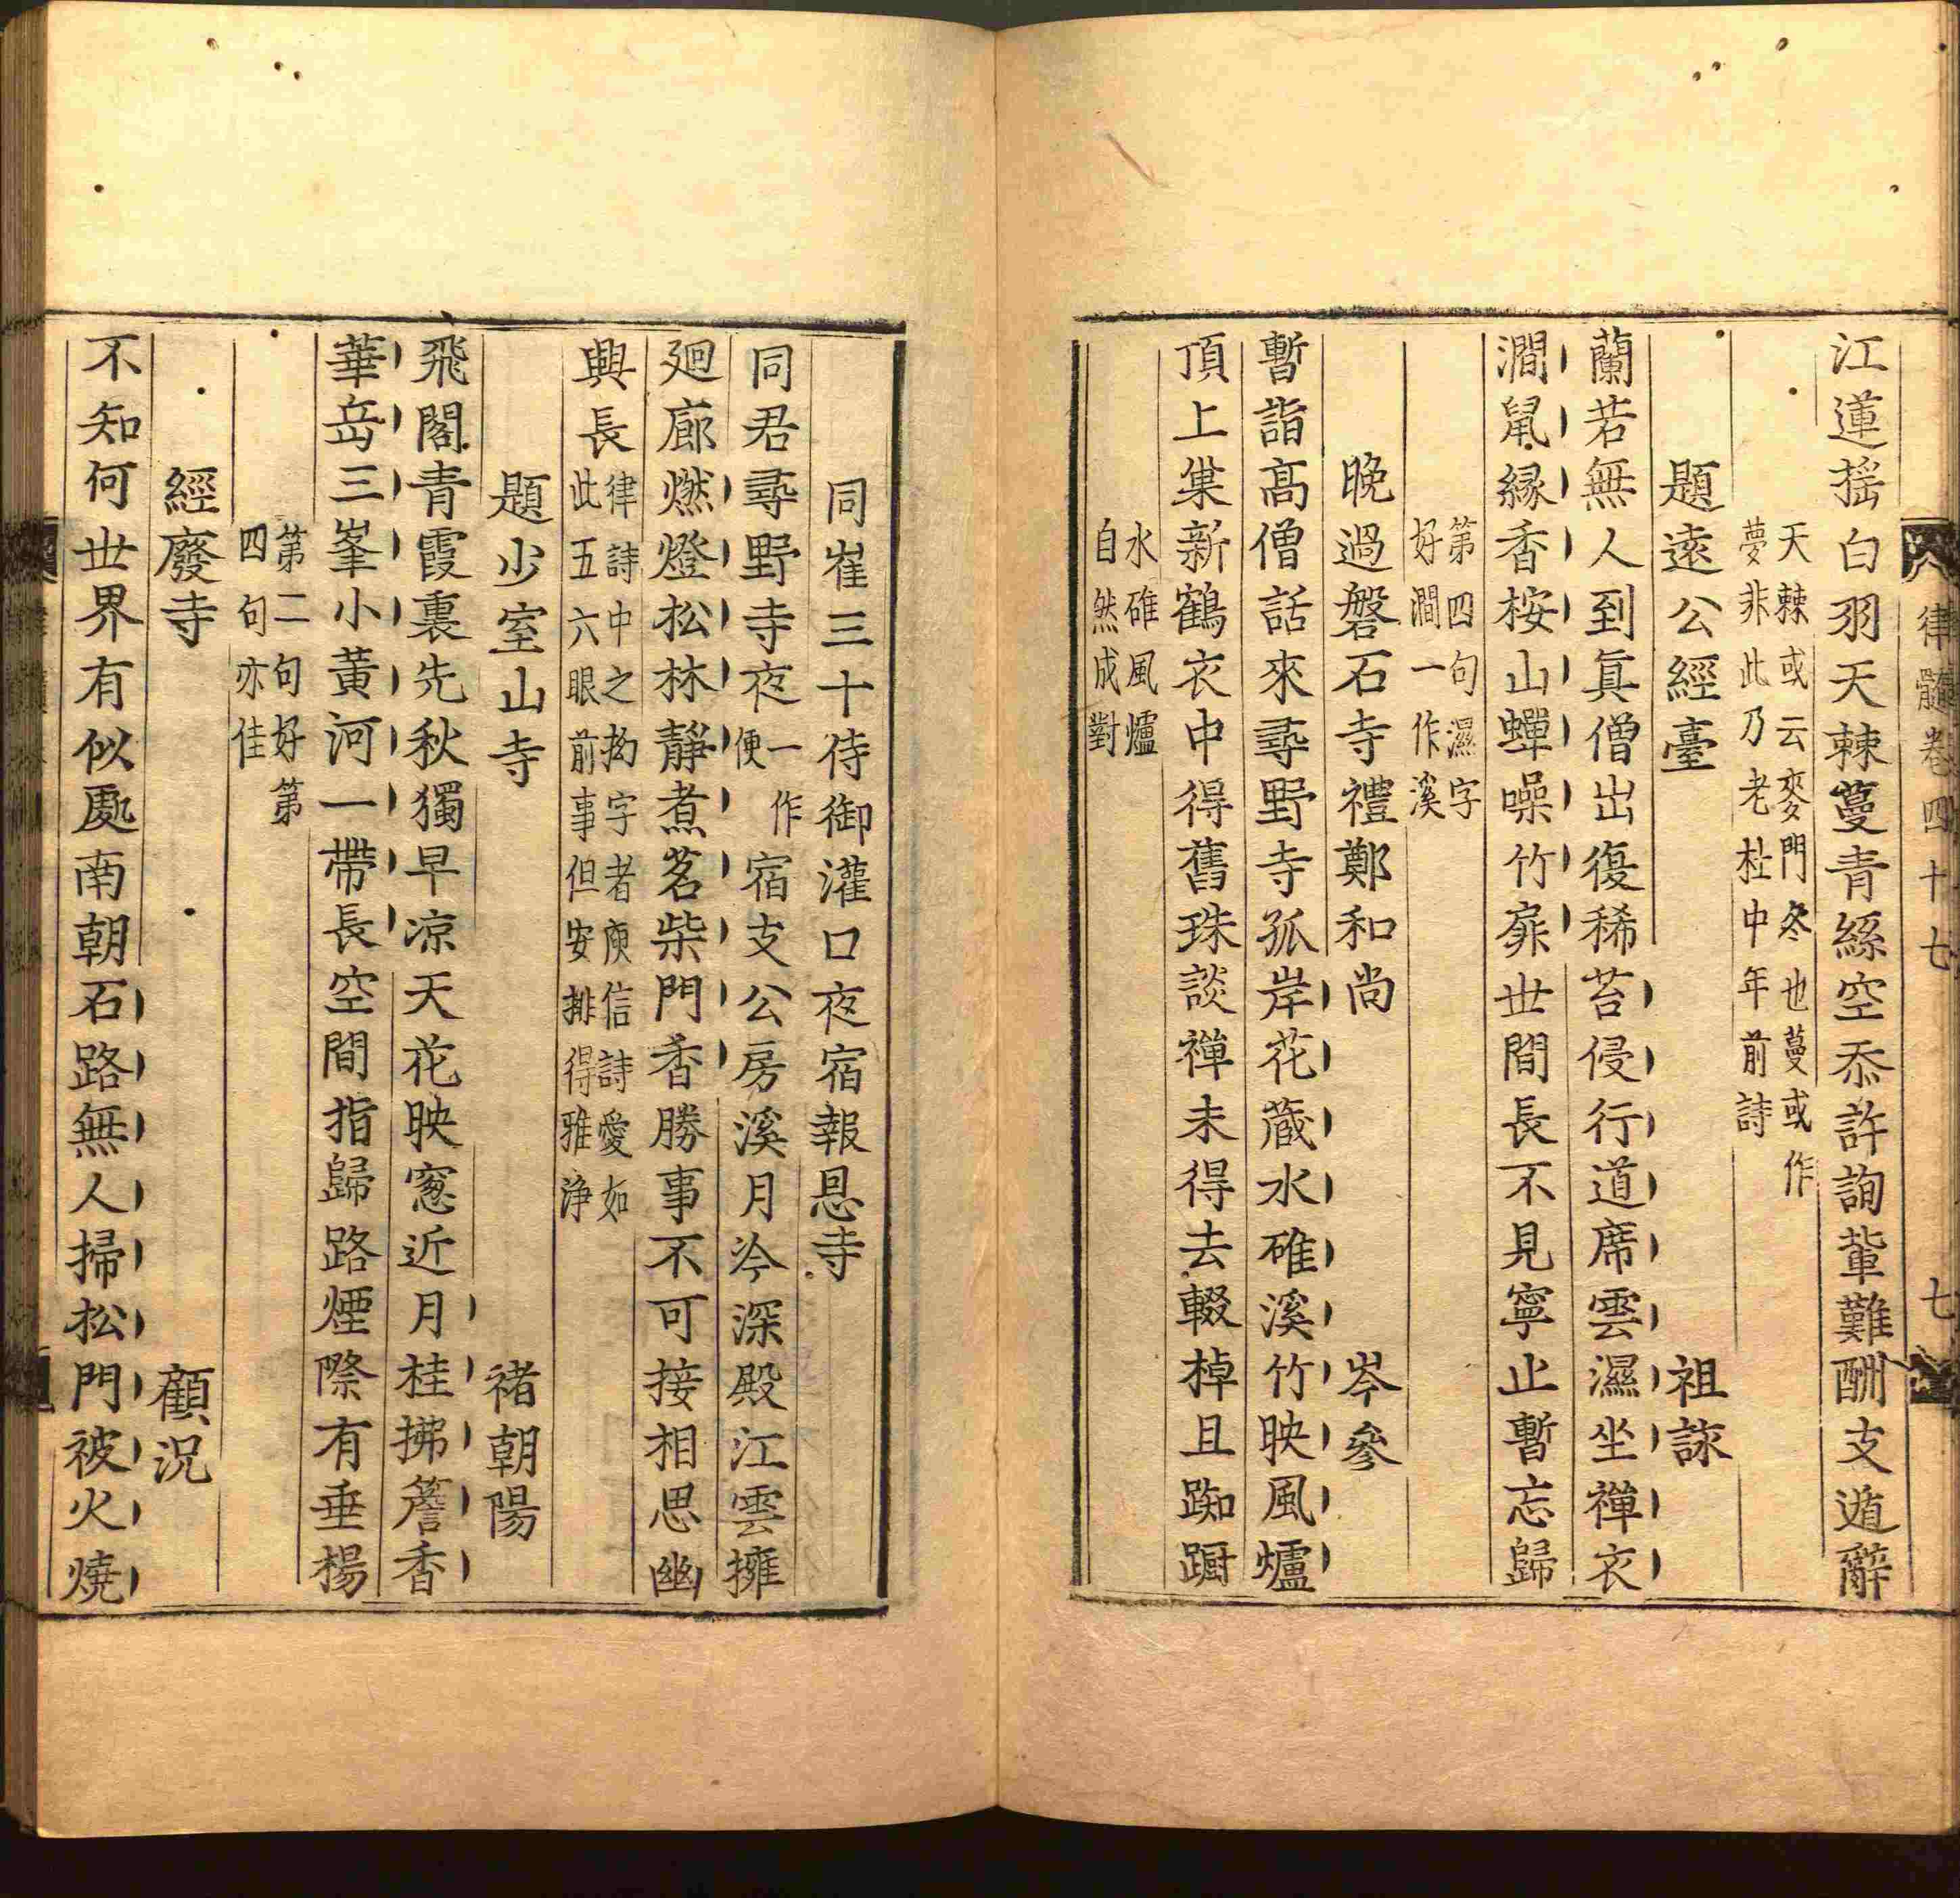 律髓卷四十七　七
江蓮搖白羽天棘蔓青絲空忝許詢輩難酬支遁辭
天棘或云麥門冬也蔓或作
夢非此乃老杜中年前詩
題遠公經臺　祖詠
蘭若無人到眞僧出復稀苔侵行道席雲濕坐禪衣
澗鼠縁香桉山蟬噪竹扉世間長不見寧止暫忘歸
第四句濕字
好澗一作溪
晚過磐石寺禮鄭和尚　岑參
暫詣高僧話來尋野寺孤岸花藏水碓溪竹映風爐
頂上巢新鶴衣中得舊珠談禪未得去輟棹且踟蹰
水碓風爐
自然成對
同崔三十侍御灌口夜宿報恩寺
同君尋野寺夜一作便宿支公房溪月冷深殿江雲擁
廻廊燃燈松林靜煮茗柴門香勝事不可接相思幽
興長律詩中之拗字者庾信詩愛如
此五六眼前事但安排得雅淨
題少室山寺　褚朝陽
飛閣青霞裏先秋獨早凉天花映窻近月桂拂簷香
華岳三峯小黃河一帶長空間指歸路煙際有垂楊
第二句好第
四句亦佳
經廢寺　顧況
不知何世界有似處南朝石路無人掃松門被火燒